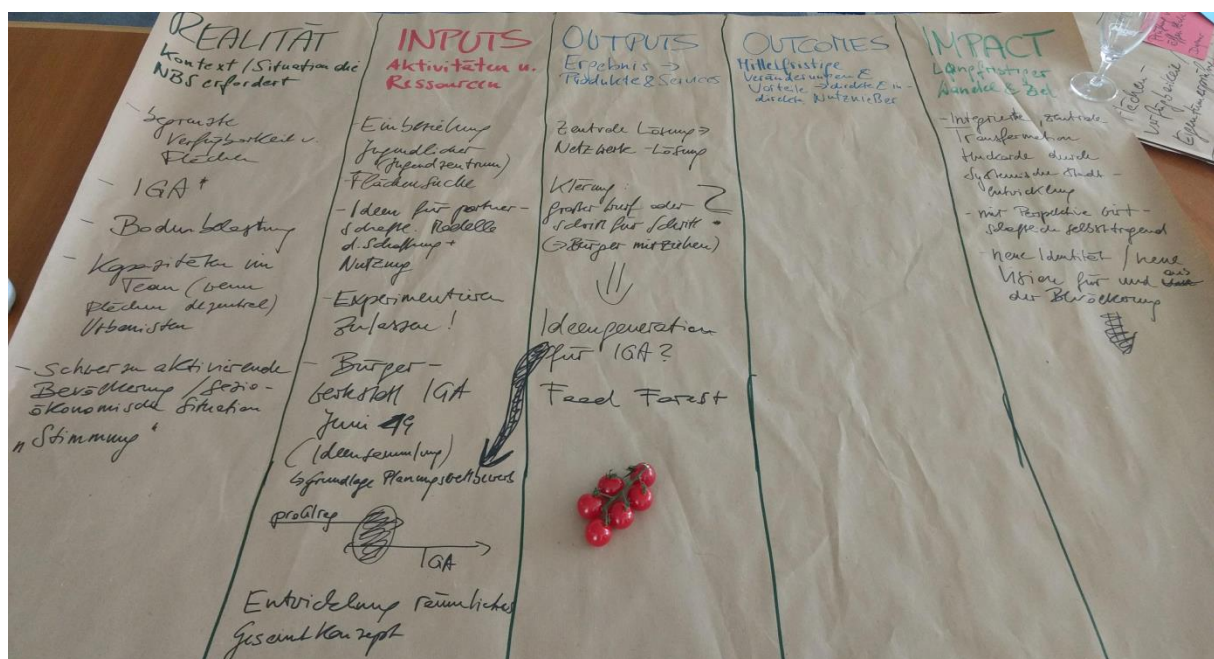 REALITÄT
Kontext / Situation die
NBS erfordert
- begrenzte
Verfügbarkeit v.
Flächen
- IGA
- Bodenbelastung
- Kapazitäten im
Team (wenn
Flächen dezentral)
Urbanisten
- Schwer zu aktivierende
Bevölkerung / sozio-
ökonomische Situation
"Stimmung"
INPUTS
Aktivitäten u.
Ressourcen
- Einbeziehung
Jugendlicher
(Jugendzentrum)
- Flächensuche
- Ideen für partner-
schaftl. Modelle
d. Schaffung +
Nutzung
- Experimentieren
zulassen!
- Bürger-
werkstatt IGA
Juni 19
(Ideensammlung)
↳ Grundlage Planungswettbewerb
proGIreg
IGA
Entwicklung räumliches
Gesamtkonzept
OUTPUTS
Ergebnis →
Produkte & Services
Zentrale Lösung →
Netzwerk-Lösung
Klärung:
großer Wurf oder
Schritt für Schritt ?
(→ Bürger mitziehen)
Ideengeneration
für IGA?
Food Forest
OUTCOMES
Mittelfristige
Veränderungen &
Vorteile → direkte & in-
direkte Nutznießer
IMPACT
Langfristiger
Wandel & Ziel
- Integrierte, zentrale
Transformation
Huckarde durch
Systemische Stadt-
entwicklung
- mit Perspektive wirt-
schaftlich selbsttragend
- neue Identität / neue
Vision für und aus
der Bevölkerung
Flächen-
verfügbarkeit /